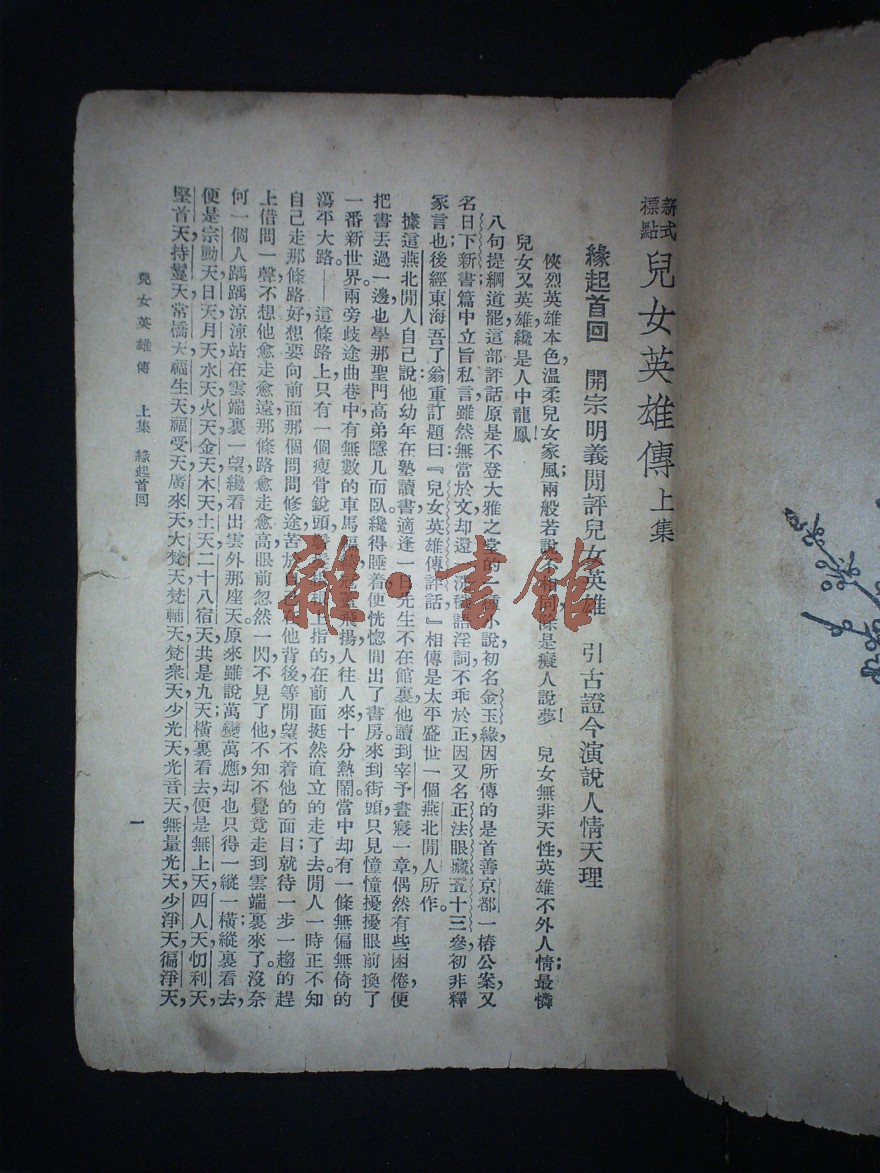 新式標點 兒女英雄傳 上集
緣起首回 開宗明義閒評兒女英雄 引古證今演說人情天理
俠烈英雄本色，溫柔兒女家風；兩般若說不 是癡人說夢！ 兒女無非天性，英雄不外人情；最憐
兒女又英雄，纔是人中龍鳳！
八句提綱道罷。這部評話原是不登大雅之堂的一種小說，初名金玉緣；因所傳的是首善京都一椿公案，又
名日下新書；篇中立旨私言，雖然無當於文，却還 淫詞，不乖於正，因又名正法眼藏五十三參，初非釋
家言也。後經東海吾了翁重訂，題曰『兒女英雄傳評話』相傳是太平盛世一個燕北閒人所作。
據這燕北閒人自己說：他幼年在塾讀書，適逢一日先生不在館裏，他讀到宰予晝寢一章，偶然有些困倦，便
把書丟過一邊，也學那聖門高弟隱几而臥。纔得睡着，便恍惚間出了書房，來到街頭，只見憧憧擾擾，眼前換了
一番新世界：兩旁歧途曲巷中，有無數的車馬 飛揚，人往人來，十分熱鬧。當中却有一條無偏無倚的
蕩平大路。——這條路上只有一個瘦骨銳頭 上指的，在前面挺然直立的走了去。閒人一時正不知
自己走那條路好，想要向前面那個問問修途，苦於自 在他背後，等閒望不着他的面目；就待一步一趨的趕
上，借問一聲，不想他愈走愈遠，那條路愈走愈高，眼前忽然一閃，不見了他，不知不覺竟走到雲端裏來了。沒奈
何，一個人踽踽涼涼站在雲端裏一望，纔看出雲外那座天。原來雖說萬變萬應，却也只得一縱一橫；縱裏看去，
便是宗動天，日天，月天，水天，火天，金天，木天，土天，二十八宿天，共是九天；橫裏看去，便是無上天，四人天，忉利天，
堅首天，持鬘天，常憍天，福生天，福受天，廣來天，大梵天，梵輔天，梵衆天，少光天，光音天，無量光天，少淨天，徧淨天，
兒女英雄傳 上集 緣起首回
一
雜·書館